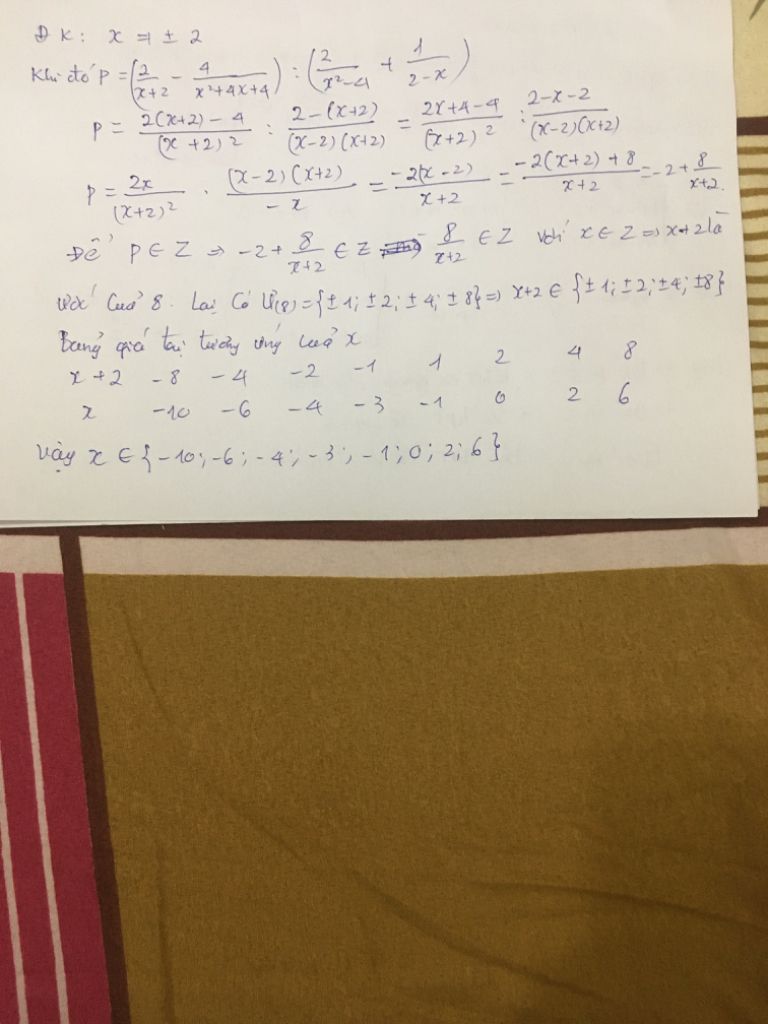 ĐK: x ≠ ± 2
Khi đó P = (2/(x+2) - 4/(x²+4x+4)) : (2/(x²-4) + 1/(2-x))
P = (2(x+2) - 4)/(x+2)² : (2-(x+2))/((x-2)(x+2)) = (2x+4-4)/(x+2)² : (2-x-2)/((x-2)(x+2))
P = 2x/(x+2)² . ((x-2)(x+2))/(-x) = (-2(x-2))/(x+2) = (-2(x+2)+8)/(x+2) = -2 + 8/(x+2).
Để P ∈ Z => -2 + 8/(x+2) ∈ Z 8/(x+2) ∈ Z với x ∈ Z => x+2 là
ước của 8. Lại có Ư(8) = {±1; ±2; ±4; ±8} => x+2 ∈ {±1; ±2; ±4; ±8}
Bảng giá trị tương ứng của x
x+2 -8 -4 -2 -1 1 2 4 8
x -10 -6 -4 -3 -1 0 2 6
Vậy x ∈ {-10; -6; -4; -3; -1; 0; 2; 6}